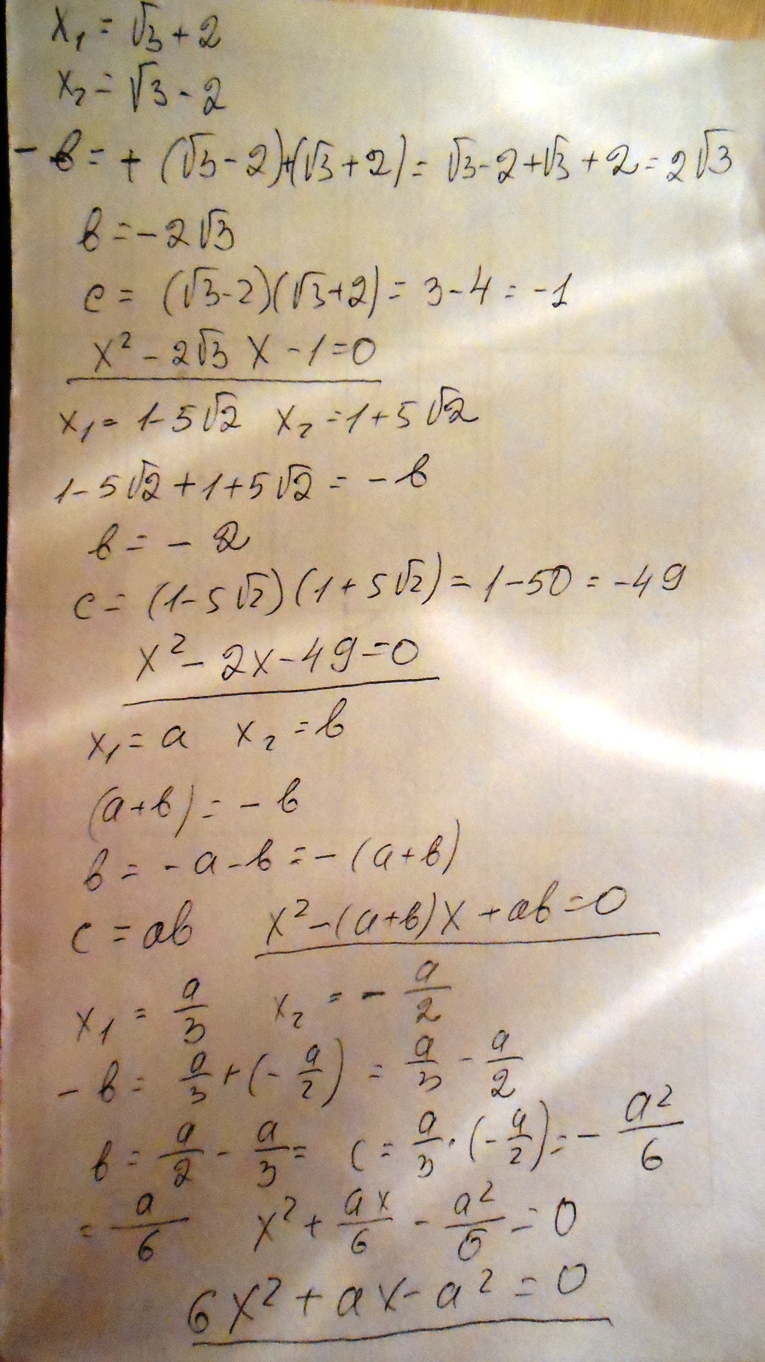 x₁ = √3 + 2
x₂ = √3 - 2
- в = + (√3 - 2) + (√3 + 2) = √3 - 2 + √3 + 2 = 2√3
в = - 2√3
c = (√3 - 2)(√3 + 2) = 3 - 4 = -1
x² - 2√3 x - 1 = 0
x₁ = 1 - 5√2 x₂ = 1 + 5√2
1 - 5√2 + 1 + 5√2 = - в
в = - 2
c = (1 - 5√2)(1 + 5√2) = 1 - 50 = - 49
x² - 2x - 49 = 0
x₁ = a x₂ = в
(a + в) = - в
в = - a - в = - (a + в)
c = aв x² - (a + в)x + aв = 0
x₁ = a/3 x₂ = - a/2
- в = a/3 + (- a/2) = a/3 - a/2
в = a/2 - a/3 = c = a/3 · (- a/2) = - a²/6
= a/6 x² + ax/6 - a²/6 = 0
6x² + ax - a² = 0